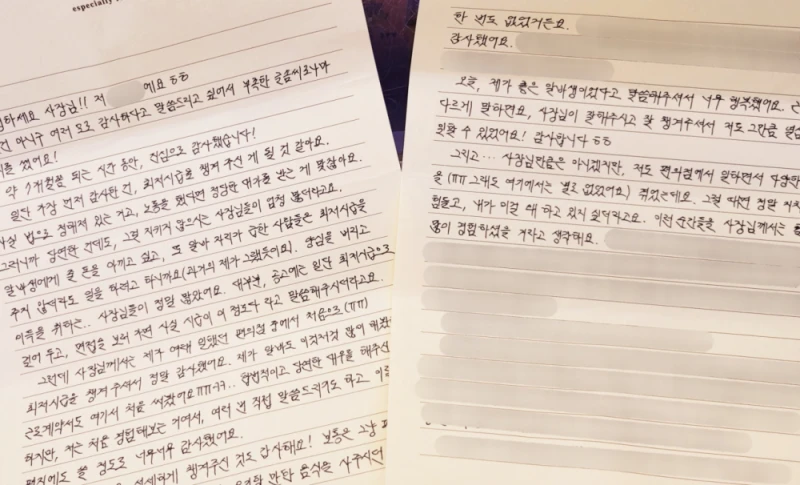 especially
하세요 사장님!! 저 예요ㅎㅎ
건 아니구 여러 모로 감사하다고 말씀드리고 싶어서 부족한 글씨로나마
를 썼어요!
약 7개월쯤 되는 시간 동안, 진심으로 감사했습니다!
일단 가장 먼저 감사한 건, 최저시급을 챙겨 주신 게 될 것 같아요.
사실 법으로 정해져 있는 거고, 노동을 했다면 정당한 대가를 받는 게 맞잖아요.
그러니까 당연한 건데도, 그걸 지키지 않으시는 사장님들이 엄청 많더라고요.
알바생에게 줄 돈을 아끼고 싶고, 또 알바 자리가 급한 사람들은 최저시급을
주지 않더라도 일을 하려고 하니까(과거의 제가 그랬듯이요). 양심을 버리고
이득을 취하는.. 사장님들이 정말 많았어요. 대부분, 공고에는 일단 최저시급으로
걸어 두고, 면접을 보러 가면 사실 시급이 이 정도다 라고 말씀해주시더라고요.
그런데 사장님께서는 제가 여태 일했던 편의점 중에서 처음으로(ㅠㅠ)
최저시급을 챙겨 주셔서 정말 감사했어요. 제가 알바도 이것저것 많이 해봤
근로계약서도 여기서 처음 써봤어요ㅠㅠㅋㅋ.. 합법적이고 당연한 대우를 해주신
하지만, 저는 처음 경험해보는 거여서, 여러 번 직접 말씀드리기도 하고 이
편지에도 쓸 정도로 너무너무 감사했어요.
세하게 챙겨주신 것도 감사해요! 보통은 그냥
만한 음식을 사주시던
한 번도 없었거든요.
감사했어요.
오늘, 제가 좋은 알바생이었다고 말씀해주셔서 너무 행복했어요.
다르게 말하면요, 사장님이 잘해주시고 잘 챙겨주셔서 저도 그만큼 열심
일할 수 있었어요! 감사합니다ㅎㅎ
그리고... 사장님만큼은 아니겠지만, 저도 편의점에서 일하면서 다양한
을 (ㅠㅠ 그래도 여기에서는 별로 없었어요) 겪었는데요. 그럴 때면 정말 지치
힘들고, 내가 이걸 왜 하고 있지 싶더라고요. 이런 순간들을 사장님께서는
많이 경험하셨을 거라고 생각해요.